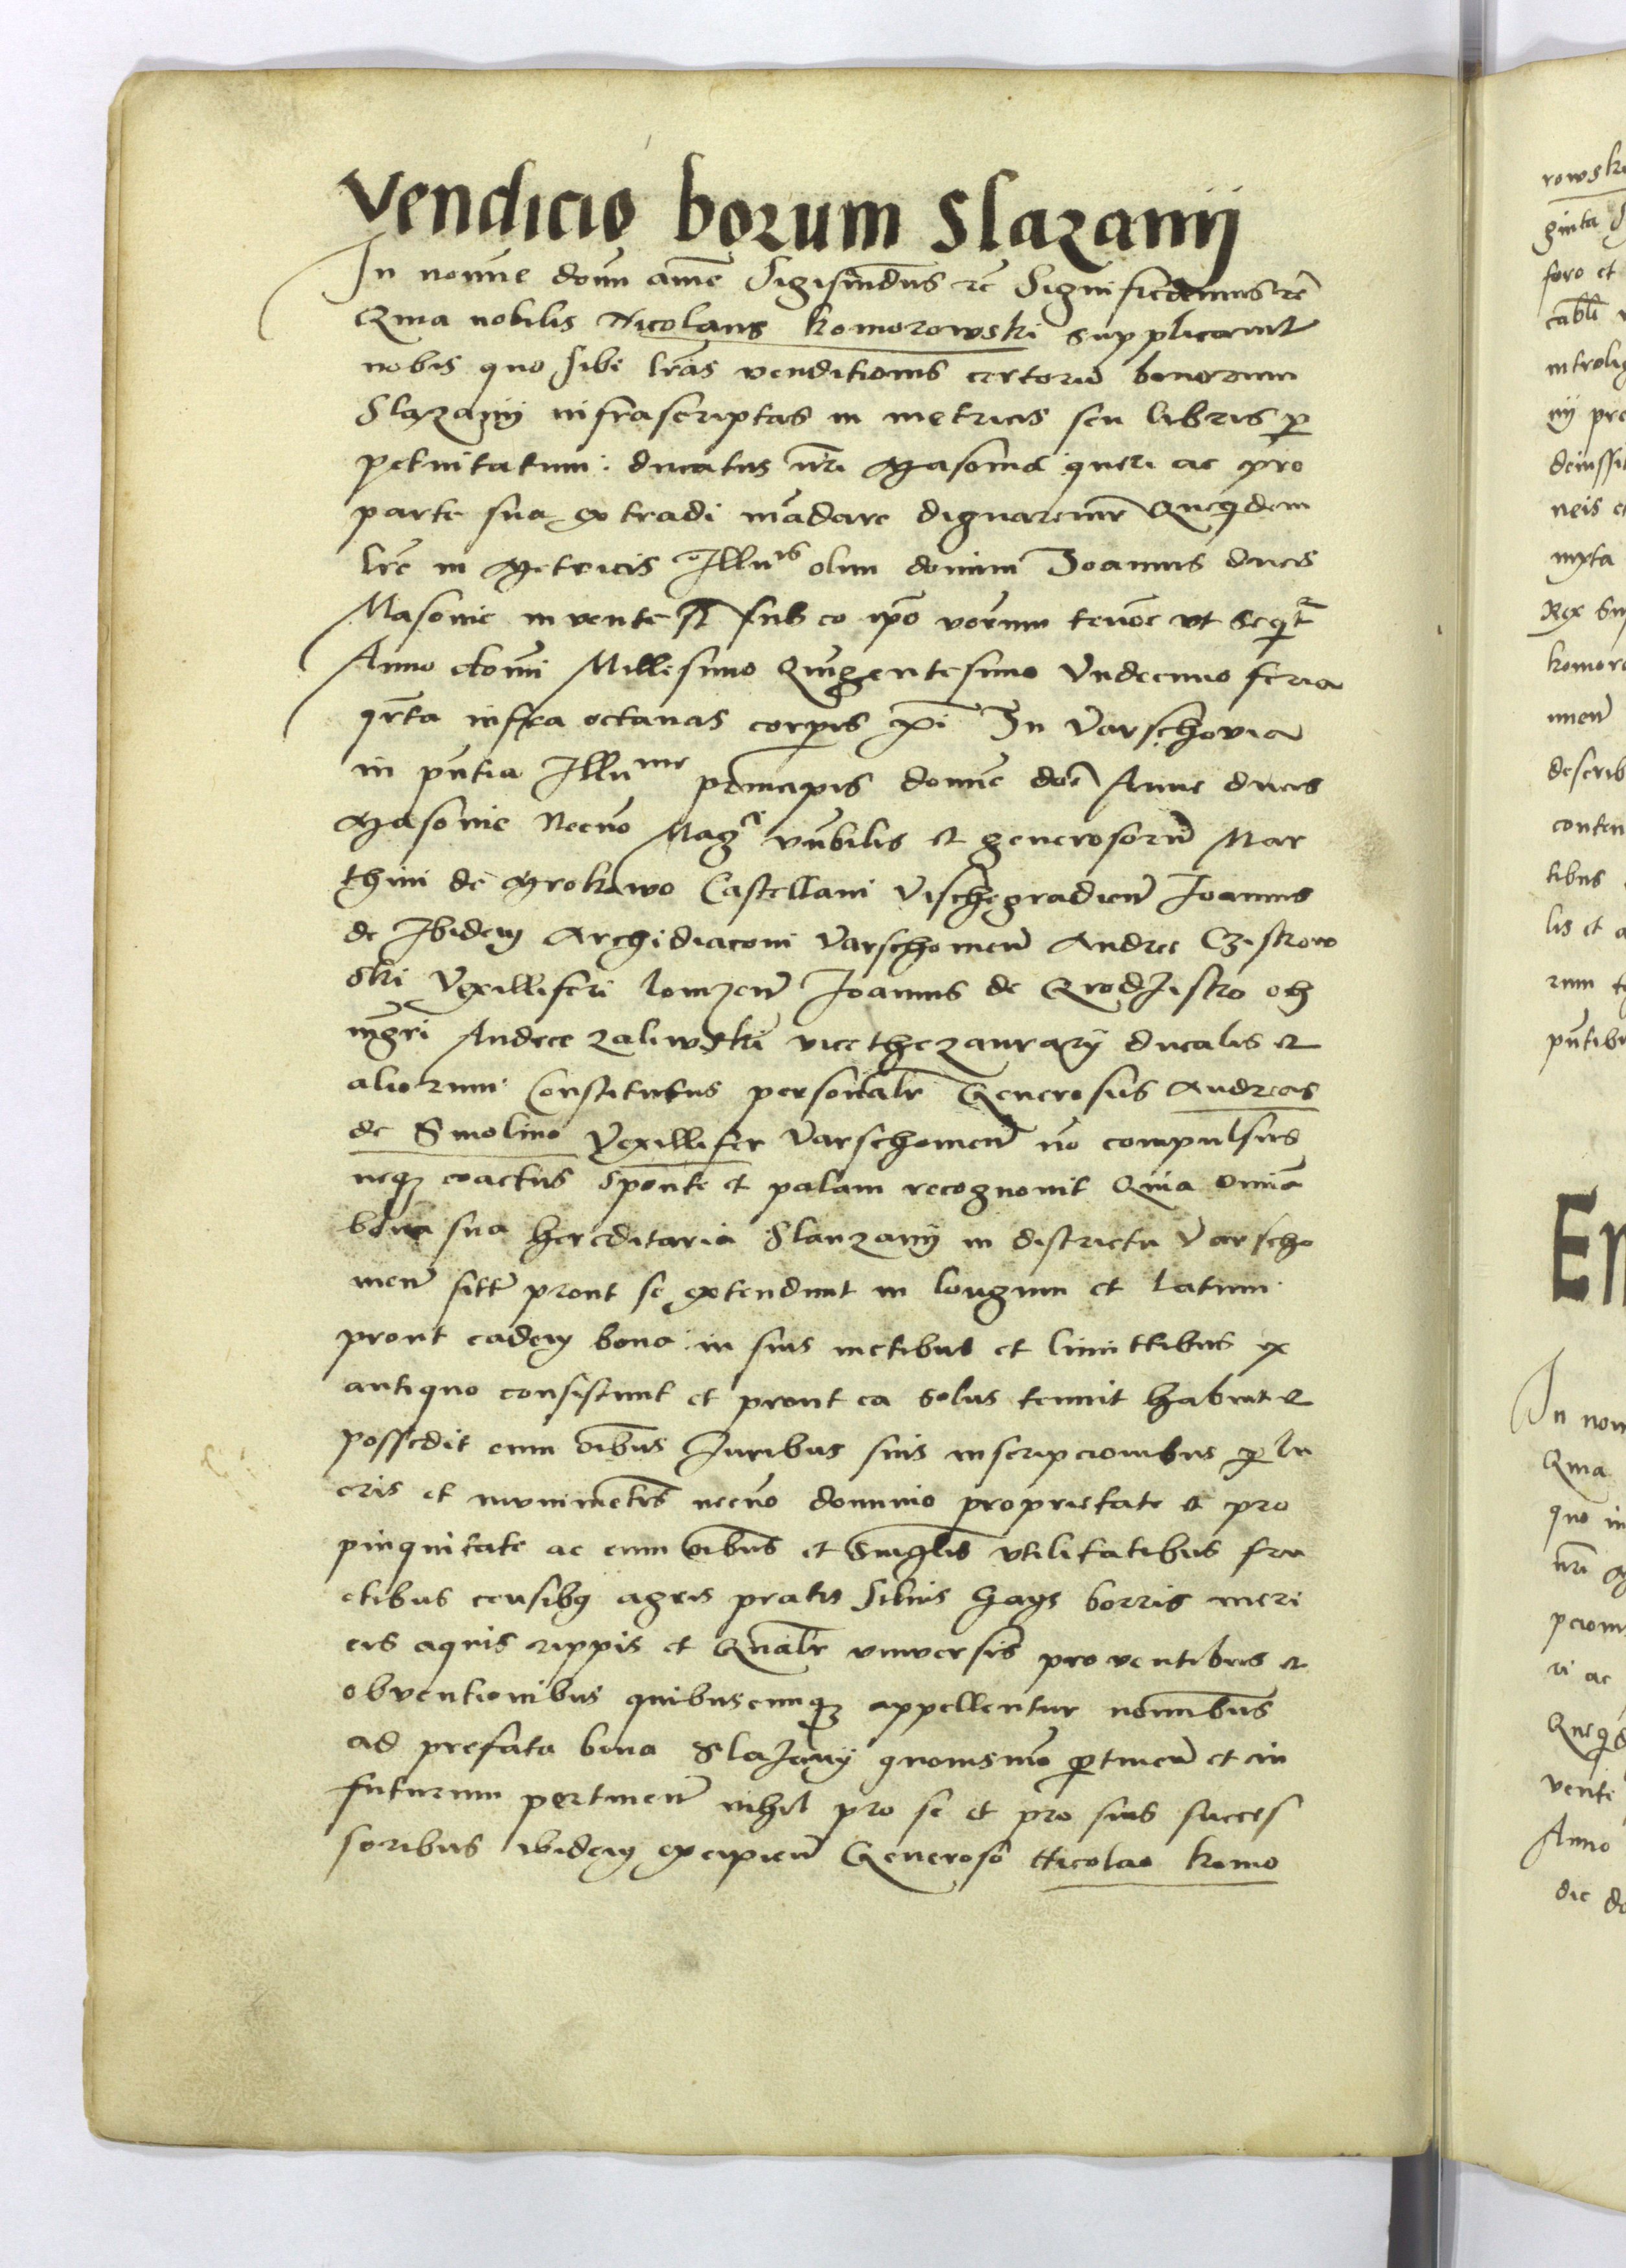 Vendicio borum Slazanij
In nomine domini ame Sigismudus rc Significamus rc
Quia nobilis Nicolaus Komorowski supplicavit
nobis quo sibi lras venditionis certoru bonorum
Slazanij infrascriptas in metricis seu libris per
petuitatum ducatus nri Masovie queri ac pro
parte sua extradi madare dignaremr Quequidem
lre in Metricis Illmis olim domini Joannis ducis
Masovie invente st sub eo ipo verum tenore ut sequitr
Anno domini Millesimo Quigentesimo Undecimo feria
qrta infra octavas corpris xpi In Varschovia
in pntia Illume principis domine doe Anne ducis
Masovie Necno Magci vnbilis et generosoru Mar
thini de Mrokowo Castellani Vischegradien Joannis
de Ibidem Archidiaconi Varschovien Andree Czistrow
ski Vexilliferi Lomzen Joannis de Grodzistro
mgri Andree Zaliwski vicethezaurarij ducalis et
aliorum Constitutus personalr Generosus Andreas
de Smolino Vexillifer Varschovien no compulsus
neq coactus sponte et palam recognovit Quia omnia
bona sua hereditaria Slanzanij in districtu Varscho
vien sitt prout se extendunt in longum et latum
prout eadem bona in suis metibus et limittibus ex
antiquo consistunt et prout ea solus tenuit habuit et
possedit cum oibus Juribus suis inscripcionibus per lu
cris et munimetis necno dominio proprietate et pro
pinquitate ac cum oibus et singlis utilitatibus fru
ctibus censibq agris pratis silvis gays borris meri
cis aquis rippis et Gnalr universis proventibus et
obventionibus quibuscunq appellentur nominibus
ad prefata bona Slazany quovismo pertinen et in
futurum pertinen nihil pro se et pro suis succes
soribus ibidem excipien Generoso Nicolao Komo